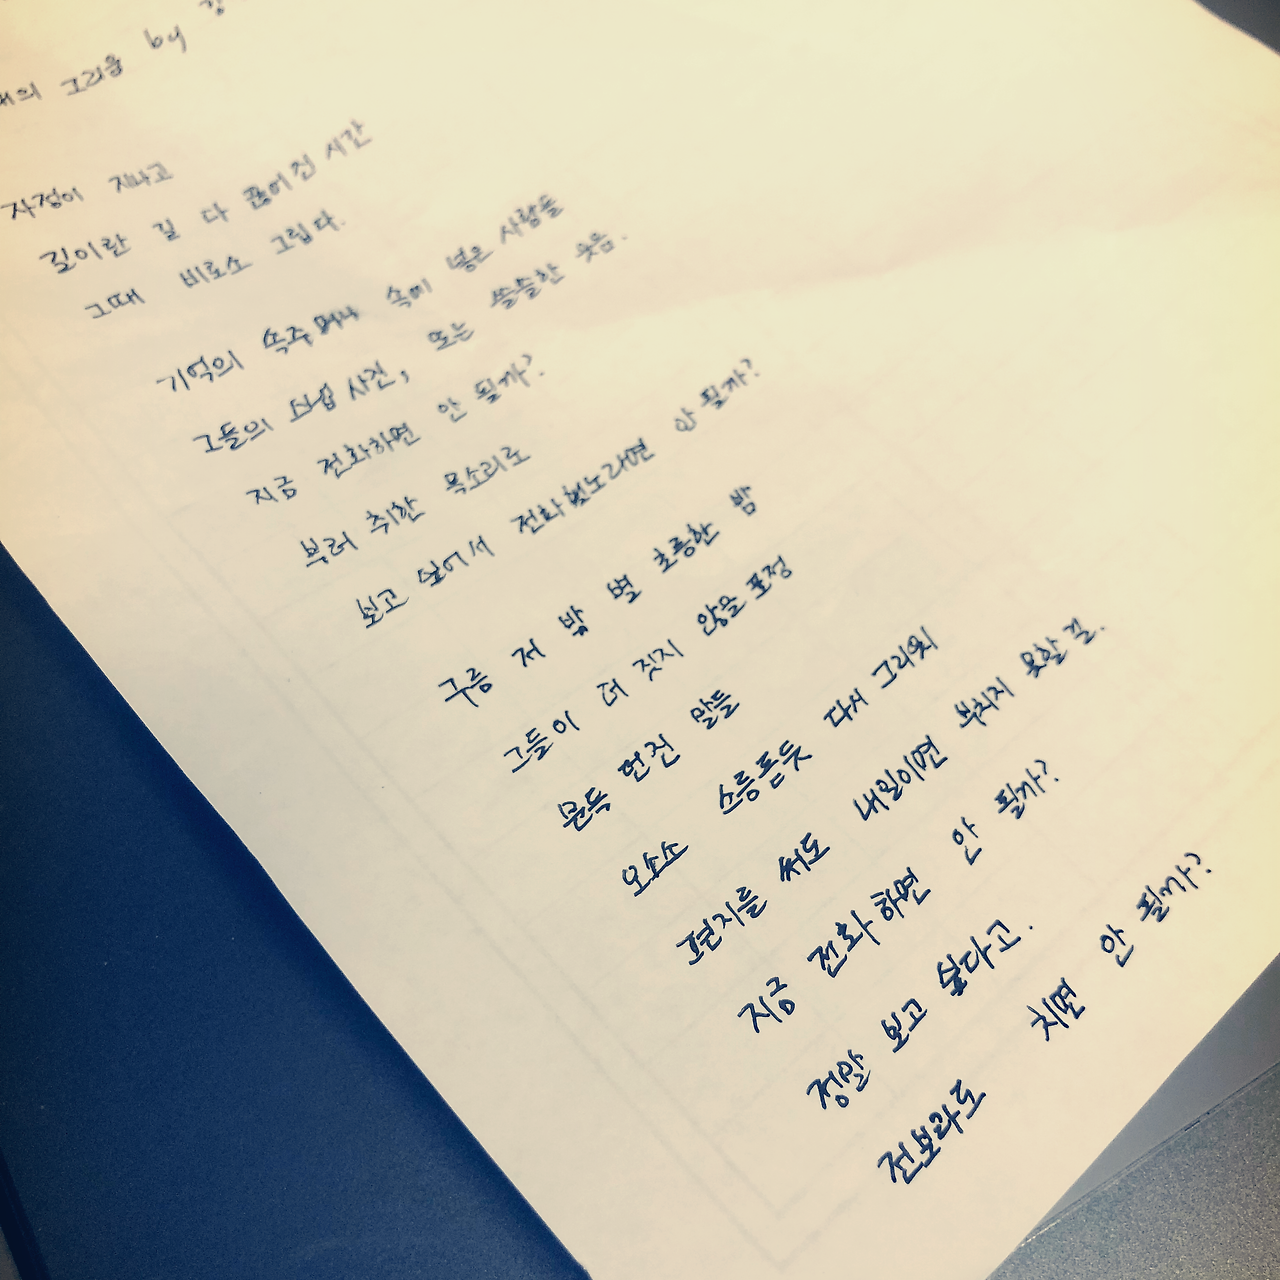 그리움 by
자정이 지나고
길이란 길 다 끊어진 시간
그때 비로소 그립다.
기억의 속주머니 속에 넣은 사람들
그들의 뇌섭 사진, 또는 쓸쓸한 웃음.
지금 전화하면 안 될까?
부러 취한 목소리로
보고 싶어서 전화했노라면 안 될까?
구름 저 밖 별 초롱한 밤
그들이 더 짓지 않을 표정
문득 헌진 말들
오소소 소름돋듯 다시 그리워
편지를 써도 내일이면 부치지 못할 걸.
지금 전화하면 안 될까?
정말 보고 싶다고.
전보라도 치면 안 될까?